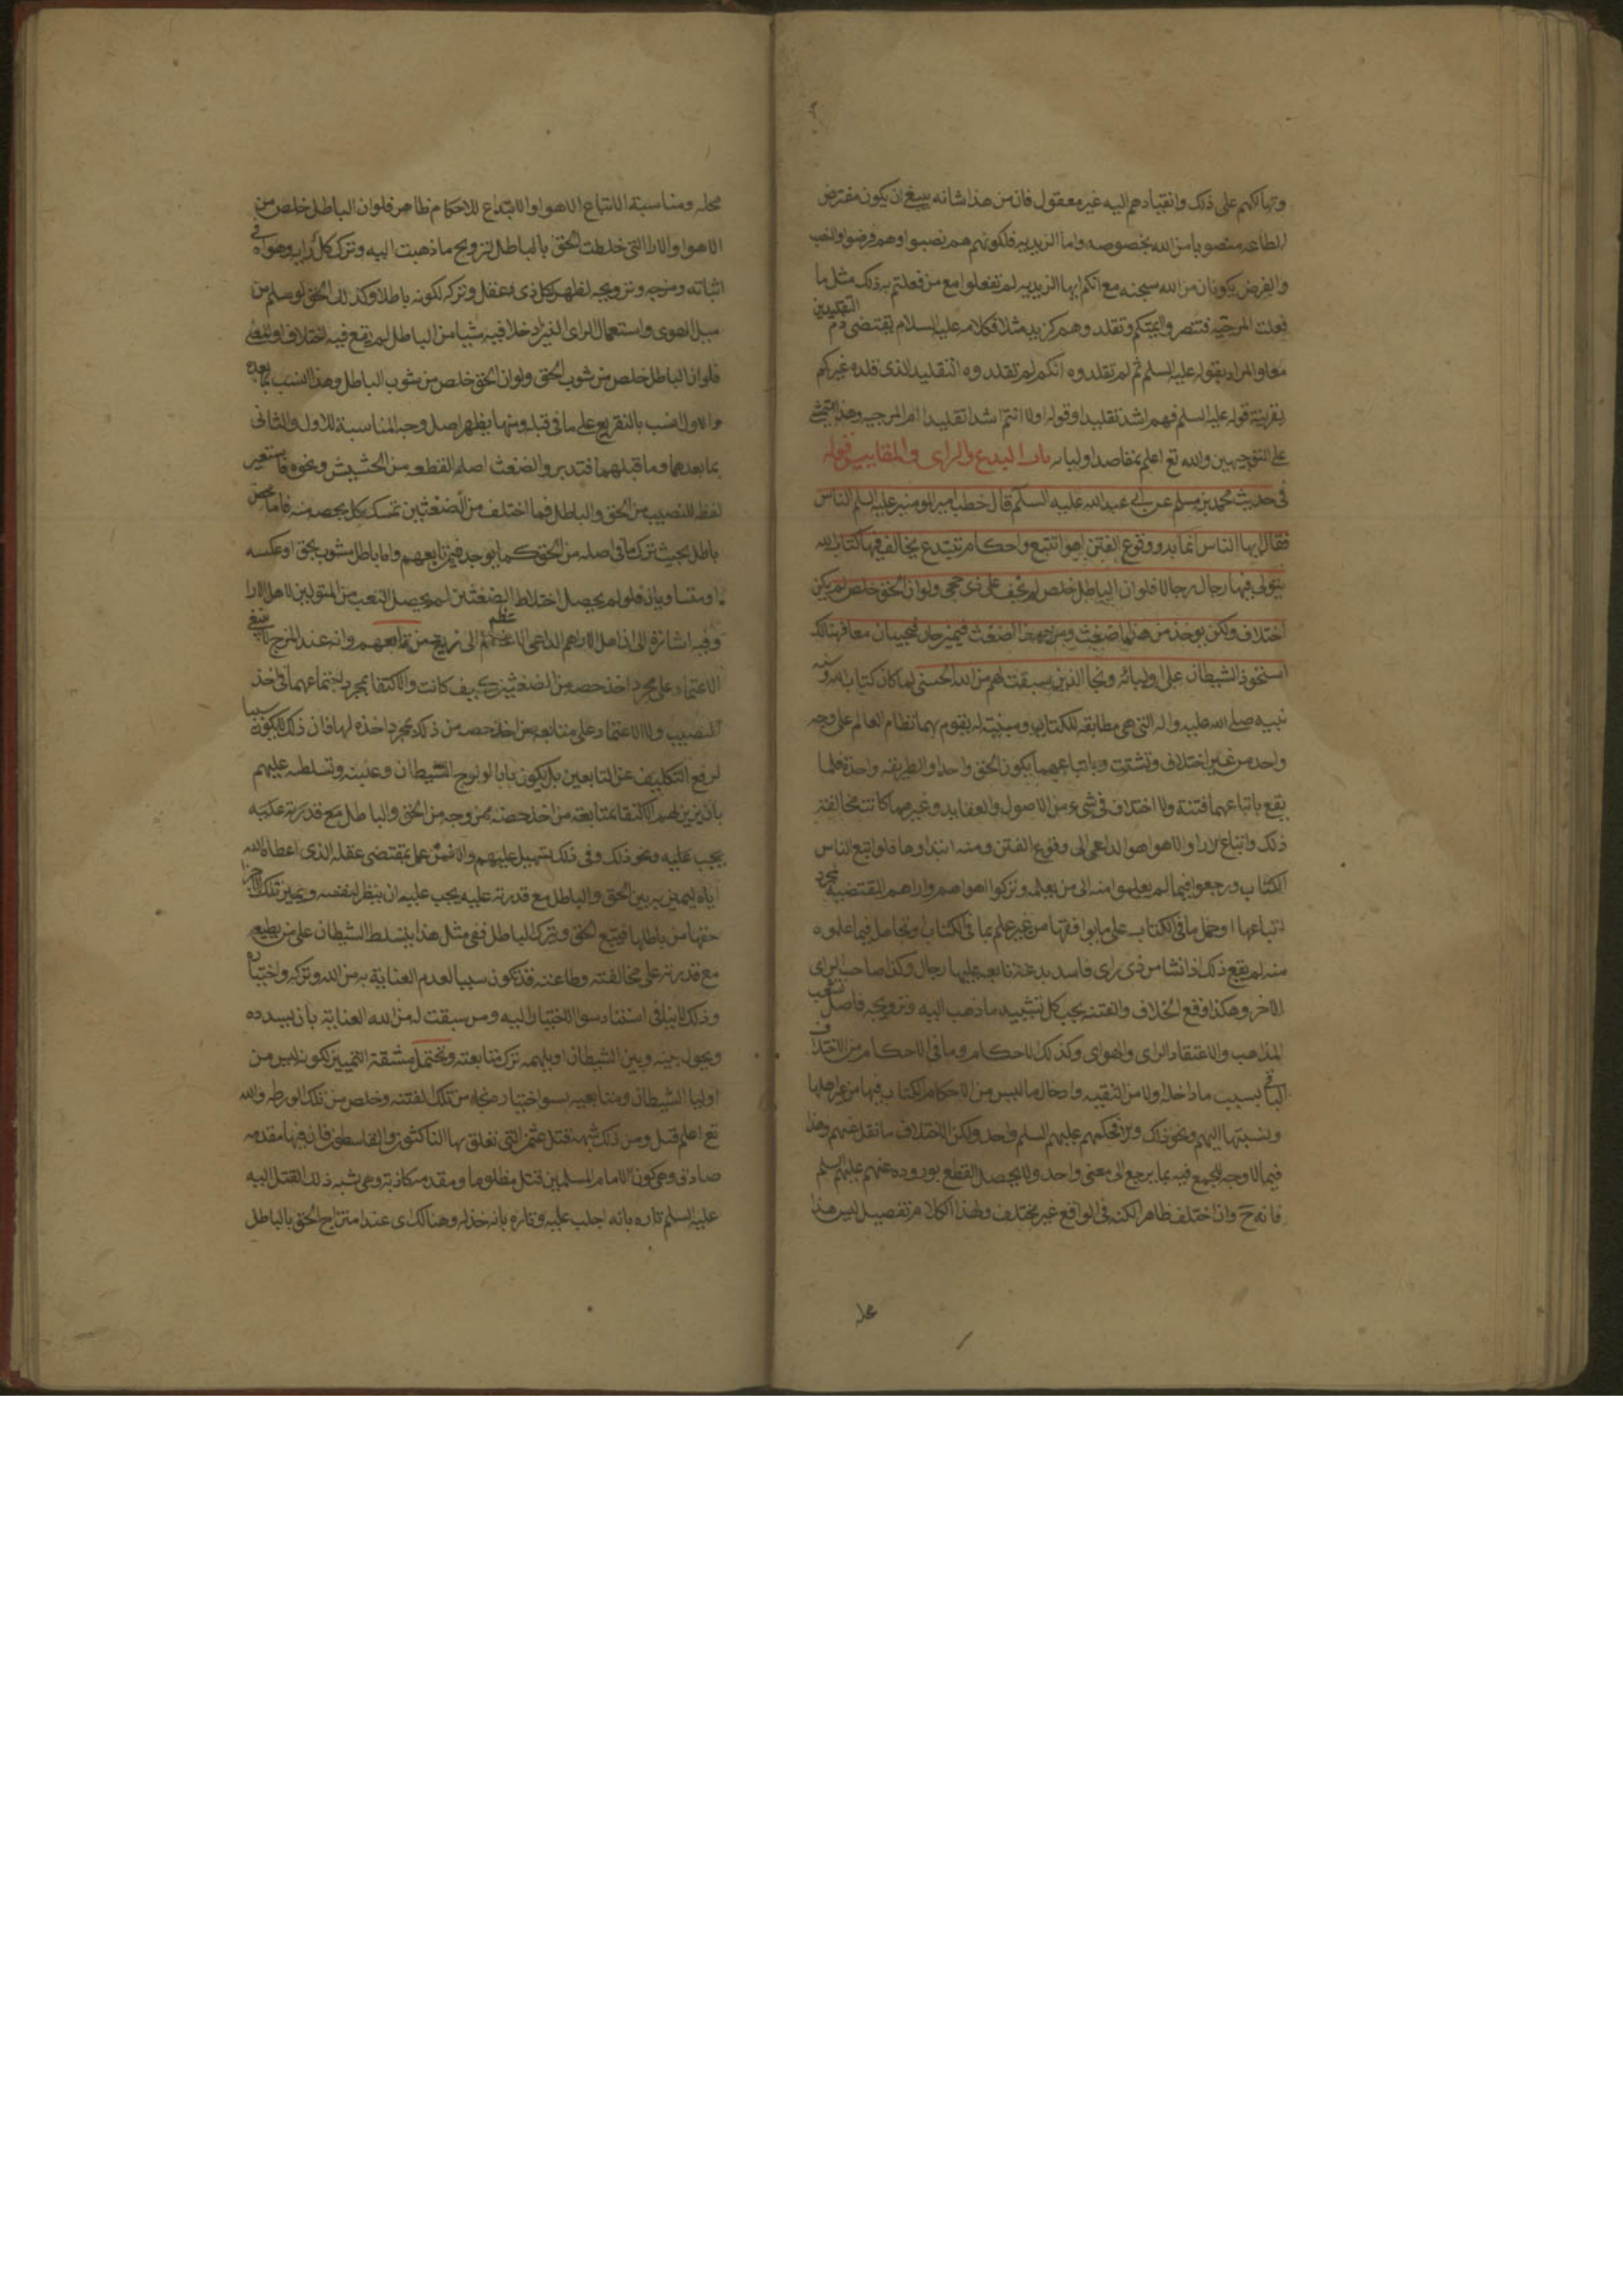 وتهالكهم على ذلك وانقيادهم اليه غير معقول فان من هذا شانه ينبغي ان يكون مفترض
الطاعه منصوبا من الله بخصوصه واما الزيديه فلكونهم هم نصبوا وهم فرضوا والنصب
والفرض يكونان من الله سبحنه مع انكم ايها الزيديه لم تفعلوا مع من فعلتم به ذلك مثل ما
فعلت المرجئه فتنصر وتقلد وهم كزيد مثلا فكلامه عليه السلام يقتضى ذم التقليدين
معا والمراد بقوله عليه السلم ثم لم تقلدوه انكم لم تقلدوه التقليد الذى قلده غيركم
بقرينة قوله عليه السلم فهم اشد تقليدا وقوله اولا انتم اشد تقليدا ام المرجيه وهذا
على التوجيهين والله تع اعلم بمقاصد اوليائه باب البدع والراى والمقاييس قوله
فى حديث محمد بن مسلم عن ابى عبدالله عليه السلم قال خطب امير المومنين عليه السلم الناس
فقال ايها الناس انما بدو وقوع الفتن اهوا تتبع واحكام تبتدع يخالف فيها كتاب الله
يتولى فيها رجال رجالا فلو ان الباطل خلص لم يخف على ذى حجى ولو ان الحق خلص لم يكن
اختلاف ولكن يوخذ من هذا ضغث ومن هذا ضغث فيمزجان فيجيئان معا فهنالك
استحوذ الشيطان على اوليائه ونجا الذين سبقت لهم من الله الحسنى لما كان كتاب الله وسنه
نبيه صلى الله عليه واله التى هى مطابقه للكتاب ومبينة له يقوم بهما نظام العالم على وجه
واحد من غير اختلاف وتشتت وباتباعهما يكون الحق واحدا والطريقه واحدة فلما
يقع باتباعهما فتنة ولا اختلاف فى شىء من الاصول والعقايد وغيرهما كانت مخالفة
ذلك واتباع الارا والاهوا هو الداعى الى وقوع الفتن ومنه ابتداوها فلو اتبع الناس
الكتاب ورجعوا فيما لم يعلموا منه الى من يعلمه وتركوا اهواهم واراهم المقتضيه لمجرد
اتباعها او حمل ما فى الكتاب على ما يوافقها من غير علم بما فى الكتاب وتجاهل فيما علموه
منه لم يقع ذلك اذا نشا من ذى راى فاسد بدعة تابعه عليها رجال وكذا صاحب الراى
الاخر وهكذا وقع الخلاف والفتنه بحب كل تشييد ما ذهب اليه وترويجه فاصل تشعب
المذاهب والاعتقاد الراى والهواى وكذلك الاحكام وما فى الاحكام من الاختلاف
الباقى بسبب ما دخل اولا من التقيه وادخال ما ليس من الاحكام الكتاب فيها من غير اهلها
ونسبتها اليهم ونحو ذلك والا فحكمهم عليهم السلم واحد ولكن الاختلاف ما نقل عنهم وهذا
فيما لا وجه للجمع فيه بما يرجع الى معنى واحد ولا يحصل القطع بوروده عنهم عليهم السلم
فانه ح وان اختلف ظاهرا لكنه فى الواقع غير مختلف ولهذا الكلام تفصيل ليس هذا
محله ومناسبة الاتباع الاهوا والابتداع للاحكام ظاهر فلو ان الباطل خلص من
الاهوا والارا التى خلطت الحق بالباطل لترويج ما ذهبت اليه وترك كل رايه وهواه فى
اثباته ومزجه وترويجه لظهر لكل ذى عقل وتركه لكونه باطلا وكذلك الحق لو سلم من
سبل الهوى واستعمال الراى الغير داخلا فيه شيا من الباطل لم يقع فيه اختلاف
فلو ان الباطل خلص من شوب الحق ولو ان الحق خلص من شوب الباطل وهذا انسب بما بعده
والاول انسب بالتفريع على ما فى قبله ومنها يظهر اصل وجه المناسبة للاول والثانى
بما بعدهما وما قبلهما فتدبر والضغث اصله القطعه من الحشيش ونحوه فاستعير
لفظه للنصيب من الحق والباطل فما اختلف من الضغثين تمسك بكل بحصه منه فاما محض
باطل بحيث ترك ما فى اصله من الحق كما يوجد فيمن تابعهم واما باطل مشوب بحق او عكسه
او متساويان فلو لم يحصل اختلاط الضغثين لم يحصل التعب من المتولين لاهل الارا
وفيه اشارة الى ان اهل الارا هم الداعى الاعظم الى تزيغ من تابعهم وانه عند المزج لا ينبغى
الاعتماد على مجرد اخذ حصه من الضغثين كيف كانت والاكتفا بمجرد اجتماعهما فى اخذ
النصيب ولا الاعتماد على متابعه من اخذ حصه من ذلك بمجرد اخذه لها فان ذلك لا يكون سببا
لرفع التكليف عن التابعين بل يكون بابا لولوج الشيطان وغلبته وتسلطه عليهم
بان يزين لهم الاكتفا بمتابعة من اخذ حصه ممزوجه من الحق والباطل مع قدرته عليه
يجب عليه ونحو ذلك وفى ذلك تسهيل عليهم والا فمن عمل بمقتضى عقله الذى اعطاه الله
اياه ليميز به بين الحق والباطل مع قدرته عليه يجب عليه ان ينظر لنفسه ويميز تلك الاجزا
حقها من باطلها فيتبع الحق ويترك الباطل ففى مثل هذا يتسلط الشيطان على من يطيعه
مع قدرته على مخالفته وطاعته قد تكون سببا لعدم العناية به من الله وتركه واختياره
وذلك لا ينافى استناد سوا الاختيار اليه ومن سبقت له من الله العناية بان يسدده
ويحول بينه وبين الشيطان او يلهمه ترك متابعته ويحتمل مشقة التمييز لكونه ليس من
اوليا الشيطان ومتابعيه بسوا اختياره نجا من تلك الفتنه وخلص من تلك الورطه والله
تع اعلم قيل ومن ذلك شبهة قتل عثمن التى تعلق بها الناكثون والقاسطون فان فيها مقدمه
صادقه وهى كون الامام المسلمين قتل مظلوما ومقدمه كاذبة وهى نسبه ذلك القتل اليه
عليه السلم تاره بانه اجلب عليه وتاره بانه خذله وهنالك اى عند امتزاج الحق بالباطل